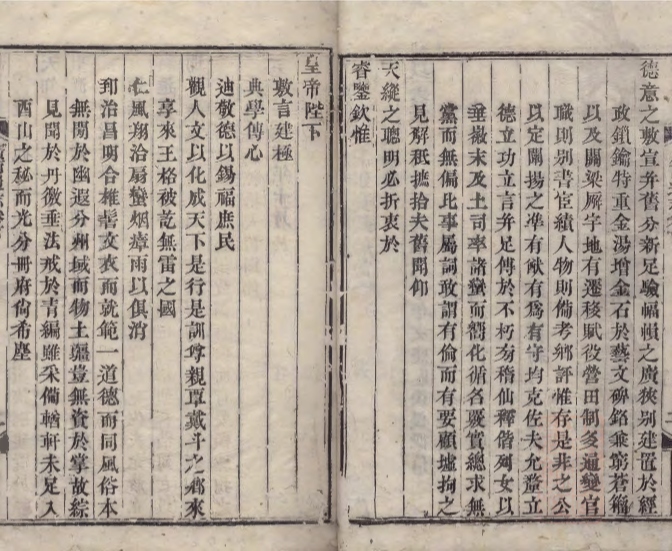 德意之敷宣并舊分新足驗幅幀之廣狹別建置於經
政鎖鑰特重金湯增金石於藝文碑銘兼窮蒼籀
以及關梁廨宇地有遷移賦役營田制多通變官
職則別書宦績人物則備考鄉評惟存是非之公
以定闡揚之準有猷有為有守均克佐夫允釐立
德立功立言并足傳於不朽旁稽仙釋偕列女以
垂撤末及土司率諸蠻而嚮化循名覈實總求無
黨而無偏比事屬詞敢謂有倫而有要顧墟拘之
見解秪摭拾夫舊聞仰
天縱之聰明必折衷於
睿鑒欽惟
皇帝陛下
敷言建極
典學傳心
迪敬德以錫福庶民
觀人文以化成天下是行是訓尊親覃戴斗之鄉來
享來王格被訖無雷之國
仁風翔洽層蠻烟瘴雨以俱消
郅治昌明合雄髻文衣而就範一道德而同風俗本
無閒於幽遐分州域而物土疆豈無資於掌故綜
見聞於丹徼垂法戒於青編雖采備輶軒未足入
酉山之秘而光分冊府尙希塵